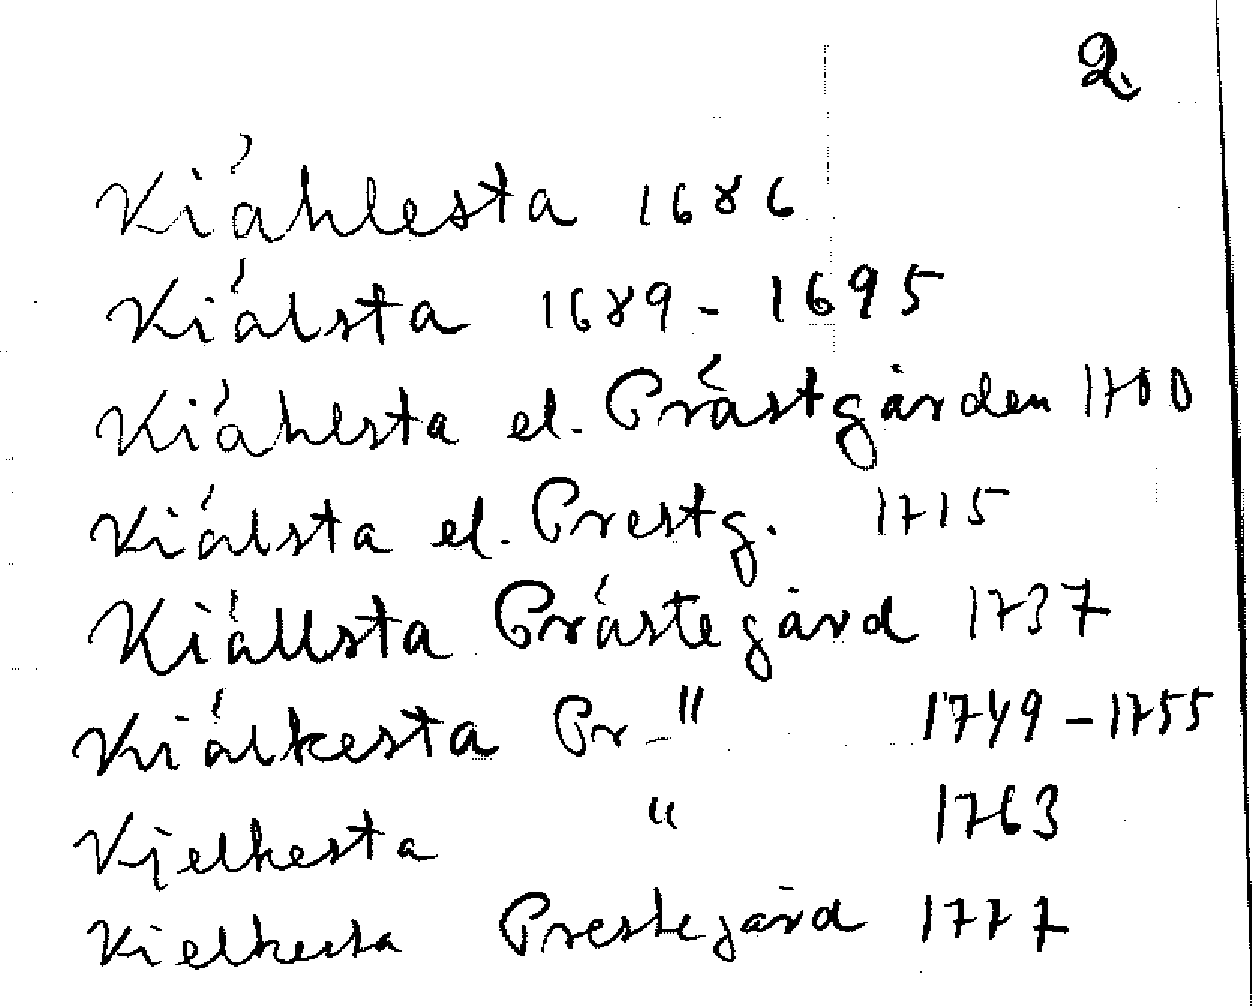 2.
Kiählesta 1686
Kiälsta 1689 - 1695
Kiählsta el. Prästgården 1700
Kiälsta el. Prestg. 1715
Kiällsta Prästegård 1737
Kiälkesta Pr - " 1749 - 1755
Kjelkesta " 1763
Kielkesta Prestegård 1777